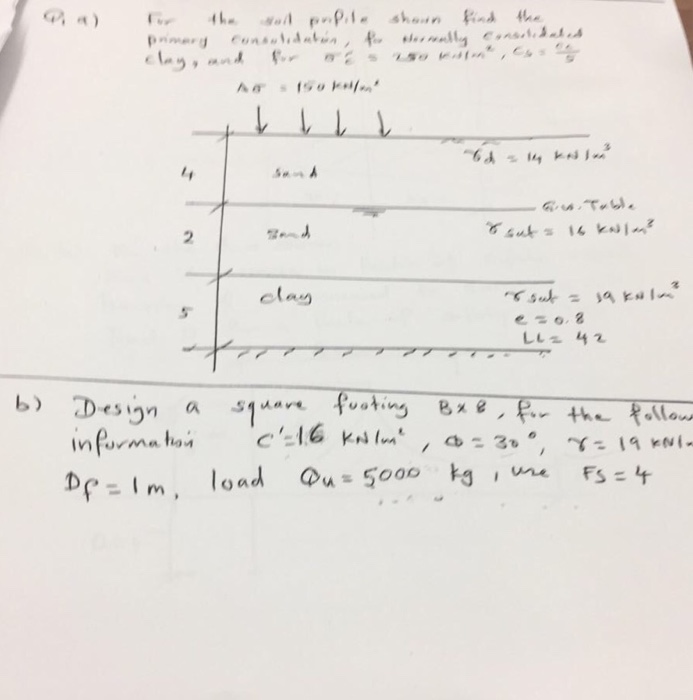 Q1 a) For the soil profile shown find the
primary consolidation, for Normally Consolidated
clay, and for σ'c = 250 kN/m², Cs = Cc/5
Δσ = 150 kN/m²
γd = 14 kN/m³
4 Sand
G.W. Table
2 Sand γsat = 16 kN/m³
clay γsat = 19 kN/m³
5 e = 0.8
LL = 42
b) Design a square footing B×B, for the follow
information C' = 1.6 kN/m², Φ = 30°, γ = 19 kN/
Df = 1 m, load Qu = 5000 kg, use FS = 4